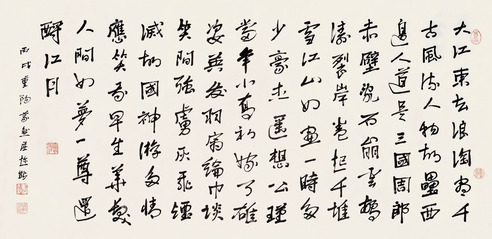 大江東去浪淘盡千
古風流人物故壘西
邊人道是三國周郎
赤壁亂石崩雲驚
濤裂岸卷起千堆
雪江山如畫一時多
少豪杰遙想公瑾
當年小喬初嫁了雄
姿英發羽扇綸巾談
笑間強虜灰飛煙
滅故國神游多情
應笑我早生華髮
人間如夢一尊還
酹江月
丙戌重陽